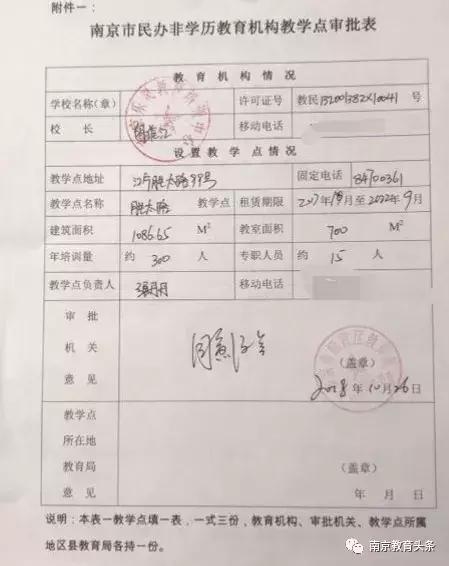 附件一：
南京市民办非学历教育机构教学点审批表
教育机构情况
学校名称（章） 许可证号 教民132001382X10041 号
校长 移动电话
设置教学点情况
教学点地址 胜太路99号 固定电话 84700361
教学点名称 胜太路 教学点 租赁期限 2017年10月至2022年9月
建筑面积 1086.65 M² 教室面积 700 M²
年培训量 约 300 人 专职人员 约 15 人
教学点负责人 张丹丹 移动电话
审批
机关 同意设立
意见 （盖章）
2018年10月26日
教学点
所在地
教育局 （盖章）
意见 年 月 日
说明：本表一教学点填一表，一式三份，教育机构、审批机关、教学点所属
地区县教育局各持一份。
南京教育头条